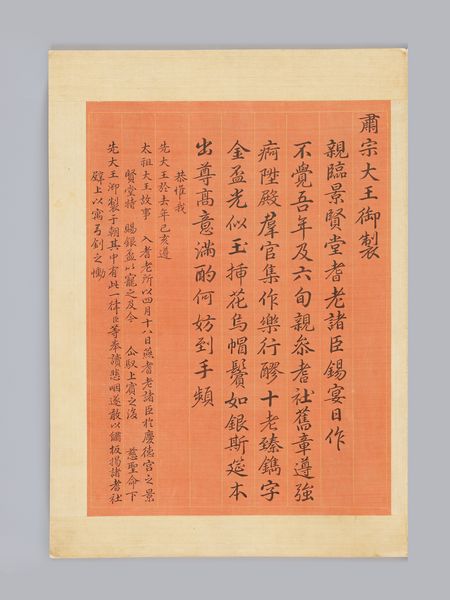 肅宗大王御製
親臨景賢堂耆老諸臣錫宴日作
不覺吾年及六旬親叅耆社舊章遵強
痾陞殿羣官集作樂行醪十老臻鐫字
金盃光似玉揷花烏帽鬢如銀斯筵本
出尊高意滿酌何妨到手頻
恭惟我
先大王於去年己亥遵
太祖大王故事 入耆老所以四月十八日燕耆老諸臣於慶德宮之景
賢堂特 賜銀盃以寵之及今 仙馭上賓之後 慈聖命下
先大王御製于朝其中有此一律臣等奉讀悲咽遂敢以繡板揭諸耆社
壁上以寓弓釰之慟